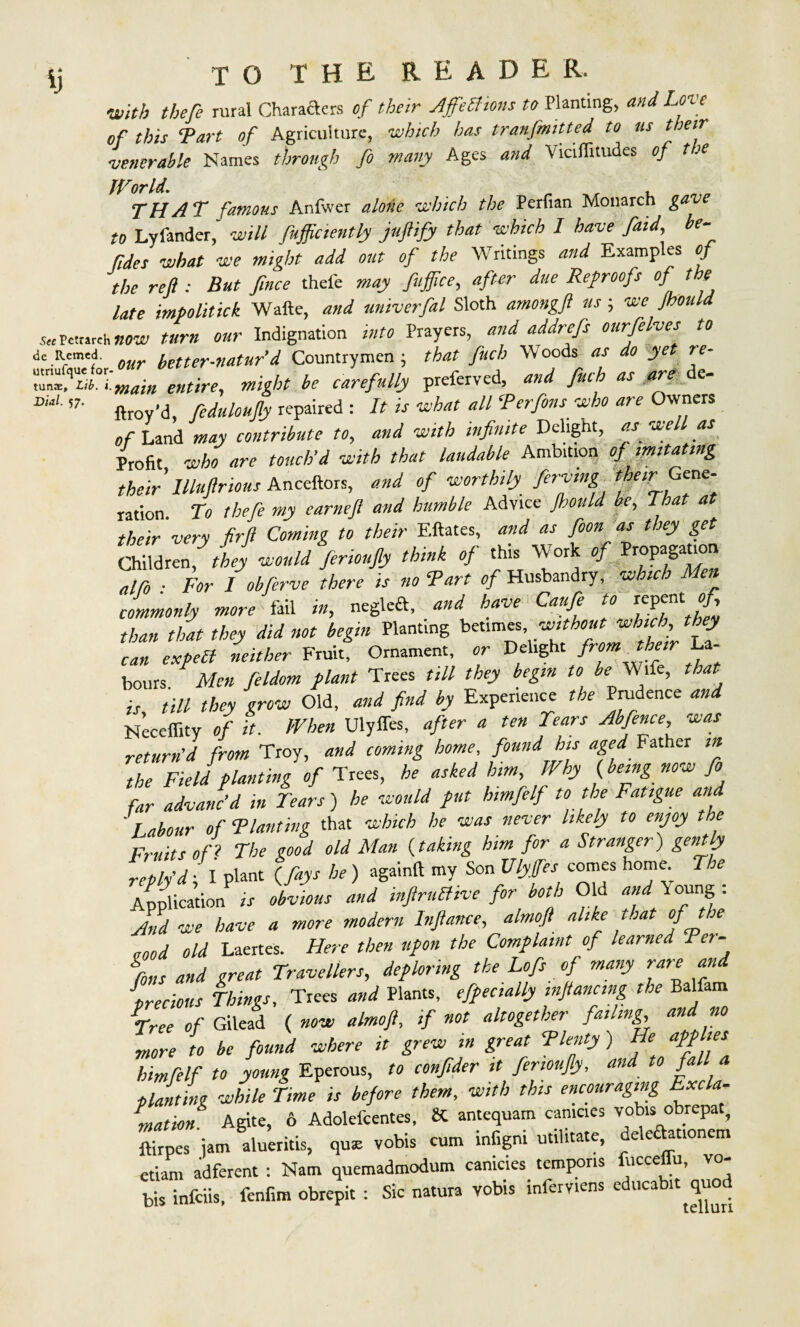 ij TO THE READER.
with theſe rural Characters of their Affections to Planting, and Love
of this Part of Agriculture, which has tranſmitted to us their
venerable Names through ſo many Ages and Viciſſitudes of the
World.
THAT famous Anſwer alone which the Perſian Monarch gave
to Lyſander, will ſufficiently juſtify that which I have ſaid, be-
ſides what we might add out of the Writings and Examples of
the reſt : But ſince theſe may ſuffice, after due Reproofs of the
late impolitick Waſte, and univerſal Sloth amongſt us ; we ſhould
See Petrarch now turn our Indignation into Prayers, and addreſs ourſelves to
de Remed. our better-natur'd Countrymen ; that ſuch Woods as do yet re-
utriuſque for-
tunæ, Lib. i. main entire, might be carefully preſerved, and ſuch as are de-
Dial. 57. ſtroy'd, ſedulouſly repaired : It is what all Perſons who are Owners
of Land may contribute to, and with infinite Delight, as well as
Profit, who are touch'd with that laudable Ambition of imitating
their Illuſtrious Anceſtors, and of worthily ſerving their Gene-
ration. To theſe my earneſt and humble Advice ſhould be, That at
their very firſt Coming to their Eſtates, and as ſoon as they get
Children, they would ſeriouſly think of this Work of Propagation
alſo : For I obſerve there is no Part of Husbandry, which Men
commonly more fail in, neglect, and have Cauſe to repent of,
than that they did not begin Planting betimes, without which, they
can expect neither Fruit, Ornament, or Delight from their La-
bours. Men ſeldom plant Trees till they begin to be Wiſe, that
is, till they grow Old, and find by Experience the Prudence and
Neceſſity of it. When Ulyſſes, after a ten Years Abſence, was
return'd from Troy, and coming home, found his aged Father in
the Field planting of Trees, he asked him, Why (being now ſo
far advanc'd in Years) he would put himſelf to the Fatigue and
Labour of Planting that which he was never likely to enjoy the
Fruits of? The good old Man (taking him for a Stranger) gently
reply'd ; I plant (ſays he) againſt my Son Ulyſſes comes home. The
Application is obvious and inſtructive for both Old and Young :
And we have a more modern Inſtance, almoſt alike that of the
good old Laertes. Here then upon the Complaint of learned Per-
ſons and great Travellers, deploring the Loſs of many rare and
precious Things, Trees and Plants, eſpecially inſtancing the Balſam
Tree of Gilead ( now almoſt, if not altogether failing, and no
more to be found where it grew in great Plenty ) He applies
himſelf to young Eperous, to conſider it ſeriouſly, and to fall a
planting while Time is before them, with this encouraging Excla-
mation. Agite, ô Adoleſcentes, & antequam canicies vobis obrepat,
ſtirpes jam alueritis, quæ vobis cum inſigni utilitate, delectationem
etiam adferent : Nam quemadmodum canicies temporis ſucceſſu, vo-
bis inſciis, ſenſim obrepit : Sic natura vobis inſerviens educabit quod
telluri